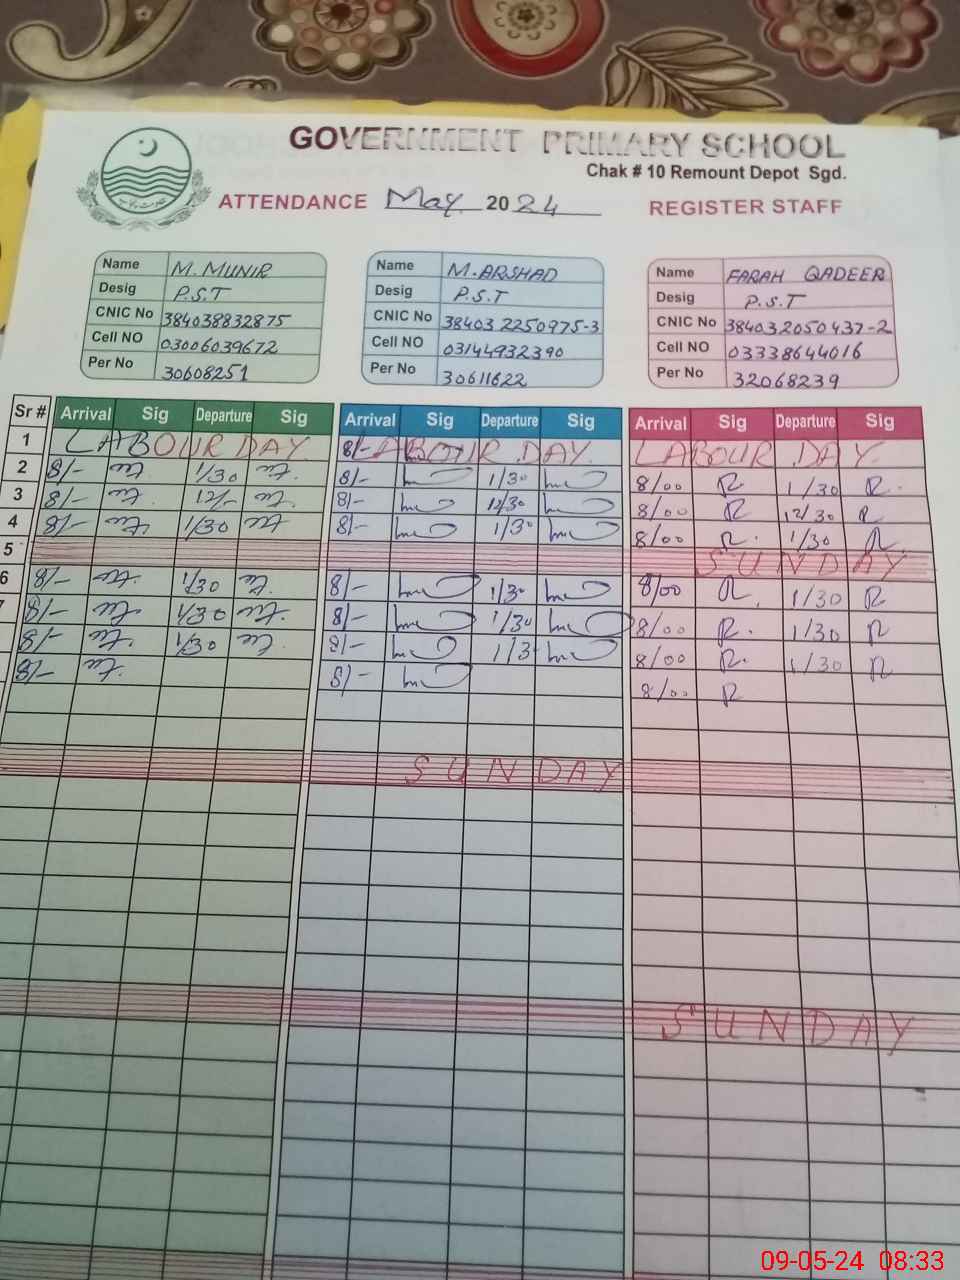 GOVERNMENT PRIMARY SCHOOL
Chak # 10 Remount Depot Sgd.
ATTENDANCE May 2024 REGISTER STAFF
Name M. MUNIR Name M. ARSHAD Name FARAH QADEER
Desig P.S.T Desig P.S.T Desig P.S.T
CNIC No 384038832875 CNIC No 384032250975-3 CNIC No 384032050437-2
Cell NO 03006039672 Cell NO 03144932390 Cell NO 03338644016
Per No 30608251 Per No 30611622 Per No 32068239
Sr # Arrival Sig Departure Sig Arrival Sig Departure Sig Arrival Sig Departure Sig
1 LABOUR DAY 8/- LABOUR DAY LABOUR DAY
2 8/- 1/30 8/- 1/30 8/00 R 1/30 R.
3 8/- 12/- 8/- 12/30 8/00 R 12/30 R
4 8/- 1/30 8/- 1/30 8/00 R. 1/30 R
5 SUNDAY
6 8/- 1/30 8/- 1/30 8/00 R. 1/30 R
7 8/- 1/30 8/- 1/30 8/00 R. 1/30 R
8/- 1/30 8/- 1/3 8/00 R. 1/30 R
8/- 8/- 8/00 R
SUNDAY
SUNDAY
09-05-24 08:33